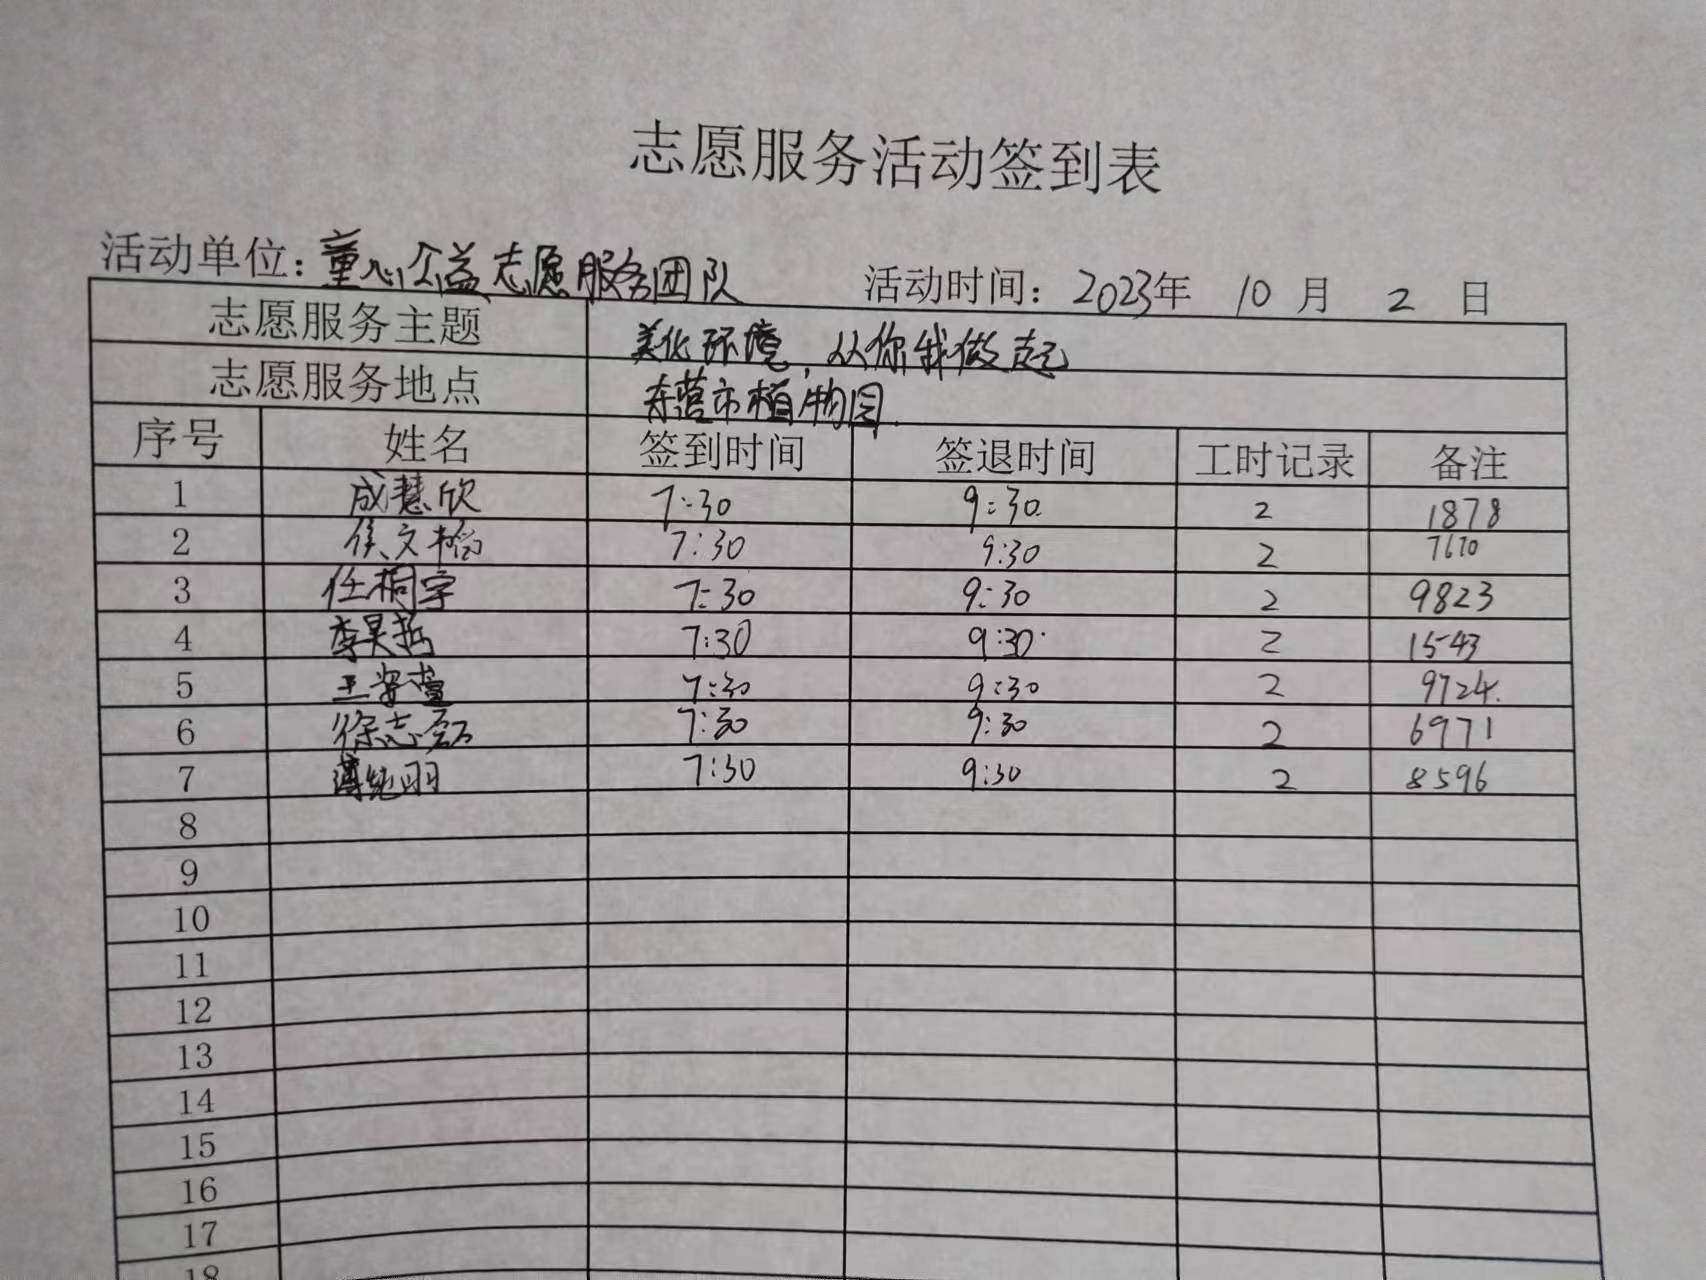 志愿服务活动签到表
活动单位：童心公益志愿服务团队 活动时间：2023年 10 月 2 日
志愿服务主题 美化环境，从你我做起
志愿服务地点 东营市植物园
序号 姓名 签到时间 签退时间 工时记录 备注
1 成慧欣 7:30 9:30 2 1878
2 侯文 7:30 9:30 2 7670
3 任桐宇 7:30 9:30 2 9823
4 李昊哲 7:30 9:30 2 1543
5 王安萱 7:30 9:30 2 9724
6 徐志磊 7:30 9:30 2 6971
7 7:30 9:30 2 8596
8
9
10
11
12
13
14
15
16
17
18